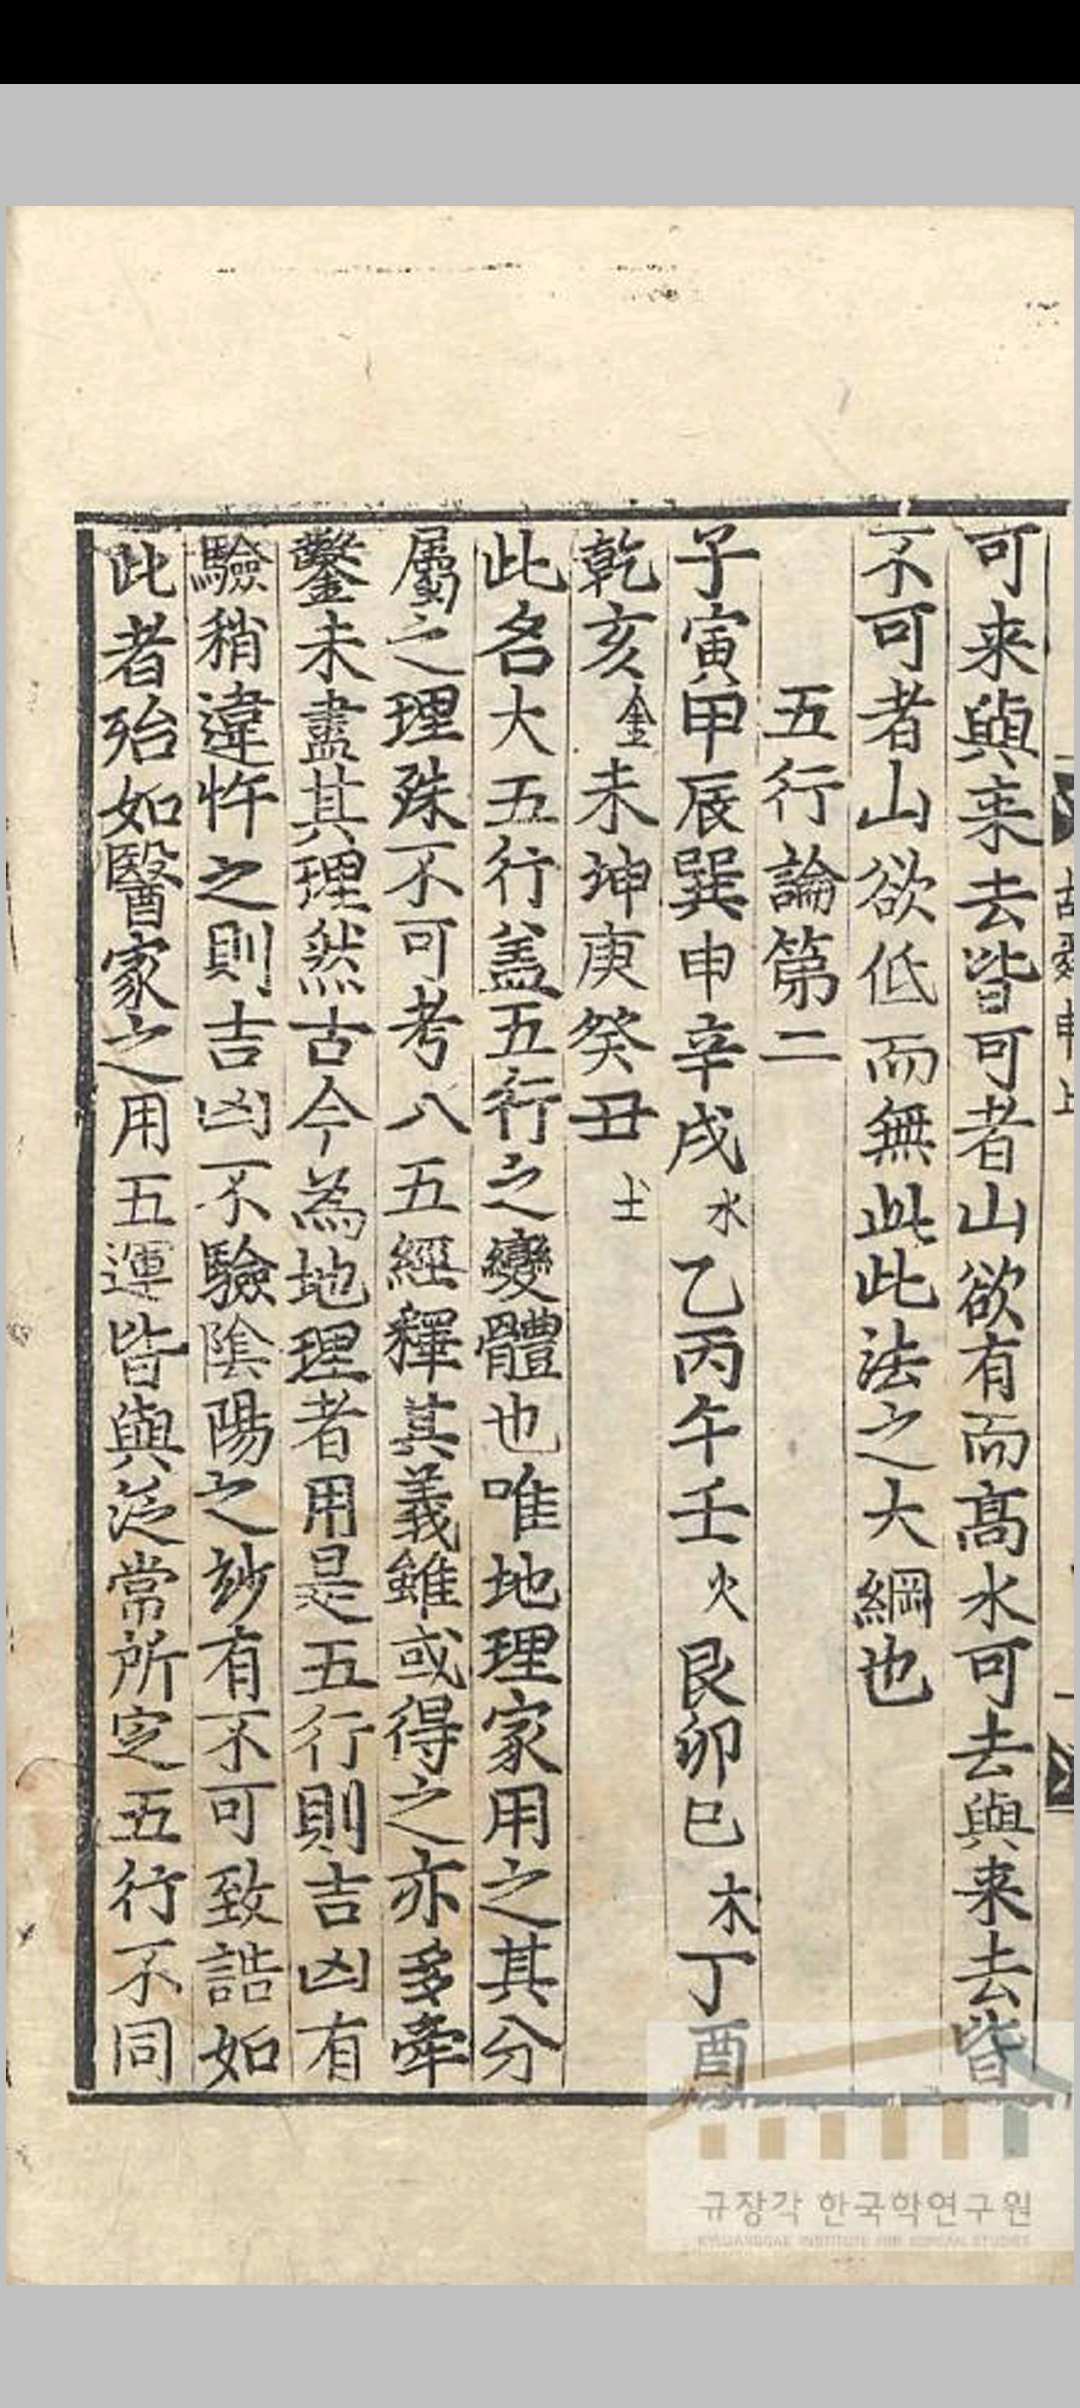 可来與来去皆可者山欲有而高水可去與来去皆
不可者山欲低而無此此法之大綱也
五行論第二
子寅甲辰巽申辛戌水乙丙午壬火艮卯巳木丁酉
乾亥金未坤庚癸丑土
此名大五行盖五行之變體也唯地理家用之其分
屬之理殊不可考八五經釋其義雖或得之亦多牽
鑿未盡其理然古今為地理者用是五行則吉凶有
驗稍違忤之則吉凶不驗陰陽之妙有不可致詰如
此者殆如醫家之用五運皆與泛常所定五行不同
규장각 한국학연구원